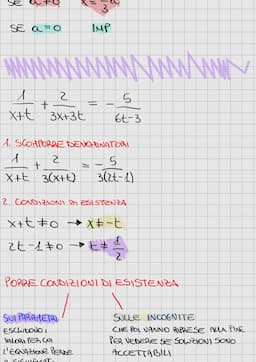 SE a≠0 x = -a/3
SE a=0 IMP
1/x+t + 2/3x+3t = - 5/6t-3
1. SCOMPORRE DENOMINATORI
1/x+t + 2/3(x+t) = - 5/3(2t-1)
2. CONDIZIONI DI ESISTENZA
x+t ≠0 → x≠-t
2t-1≠0 → t≠ 1/2
PORRE CONDIZIONI DI ESISTENZA
SUI PARAMETRI
ESCLUDONO I
VALORI PER CUI
L'EQUAZIONE PERDE
SULLE INCOGNITE
CHE POI VANNO RIPRESE ALLA FINE
PER VEDERE SE SOLUZIONI SONO
ACCETTABILI